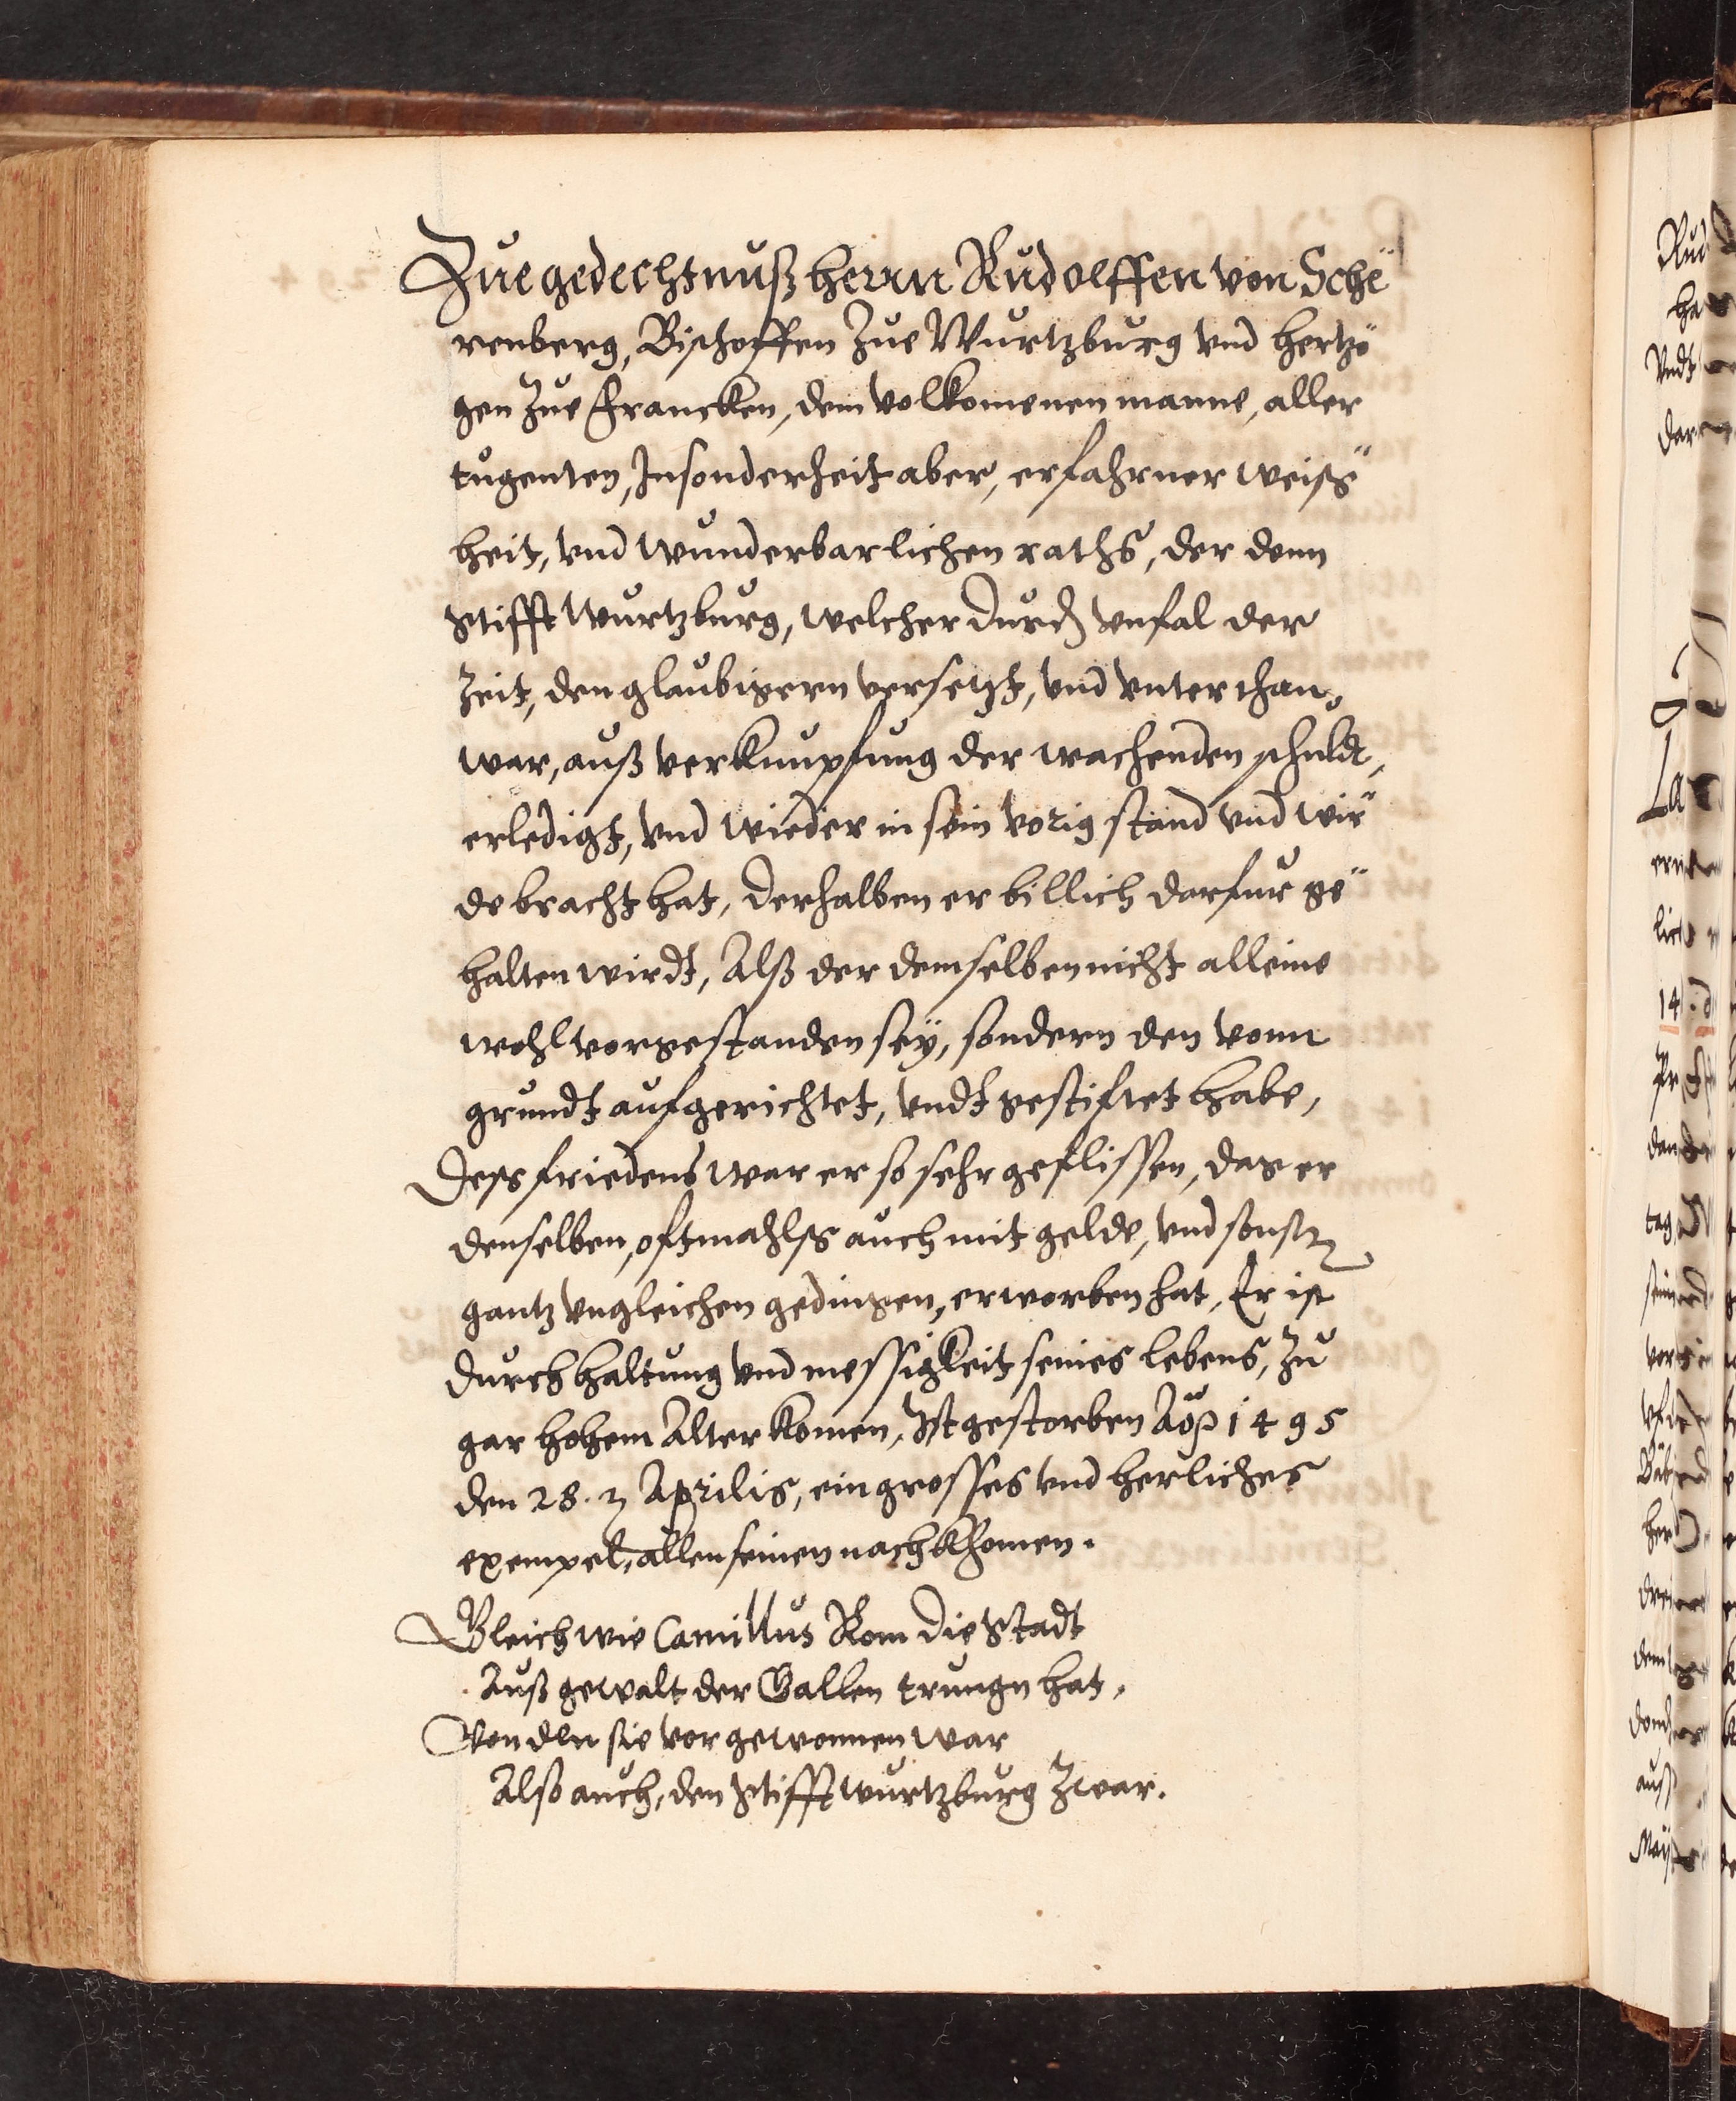 Zue gedechtnuß herrn Rudolffen von Sche¨
renberg, Bischoffen Zue Wurtzburg vnd hertzo¨
gen Zue Francken, dem volkomenen manne, aller
tugenten, Insonderheit aber, erfahrner weiß¨
heit, vnd wunderbarlichen raths, der denn
Stifft Wurtzburg, welcher durch vnfal der
Zeit, den glaubigern versetzt, vnd vnterthan,
war, auß verknupfung der wachenden schuldt,
erledigt, vnd wieder in sein vorig stand vnd wir¨
de bracht hat, derhalben er billich darfur ge¨
halten wirdt, Alß der demselben nicht alleine
wohl vorgestanden seÿ, sondern den vom
grundt aufgerichtet, vndt gestiftet habe,
Deß friedens war er so sehr geflissen, das er
denselben, oftmahlß auch mit gelde, vnd sonst
gantz vngleichen gedingen, erworben hat, Er ist
durch haltung vnd messigkeit seines lebens, Zu
gar hohem Alter komen, Ist gestorben Aõ 1495
den 28. Aprilis, ein grosses vnd herliches
exempel, allen seinen nachkhomen.
Gleich wie Camillus Rom die Stadt
Auß gewalt der Gallen trungn hat,
Von den sie vor gewonnen war
Alß auch, den Stifft wurtzburg Zwar.
Rud
ha
Vndt
dar
La
lich
14
den
tag
sein
vor
her
drei
dem
auß
May